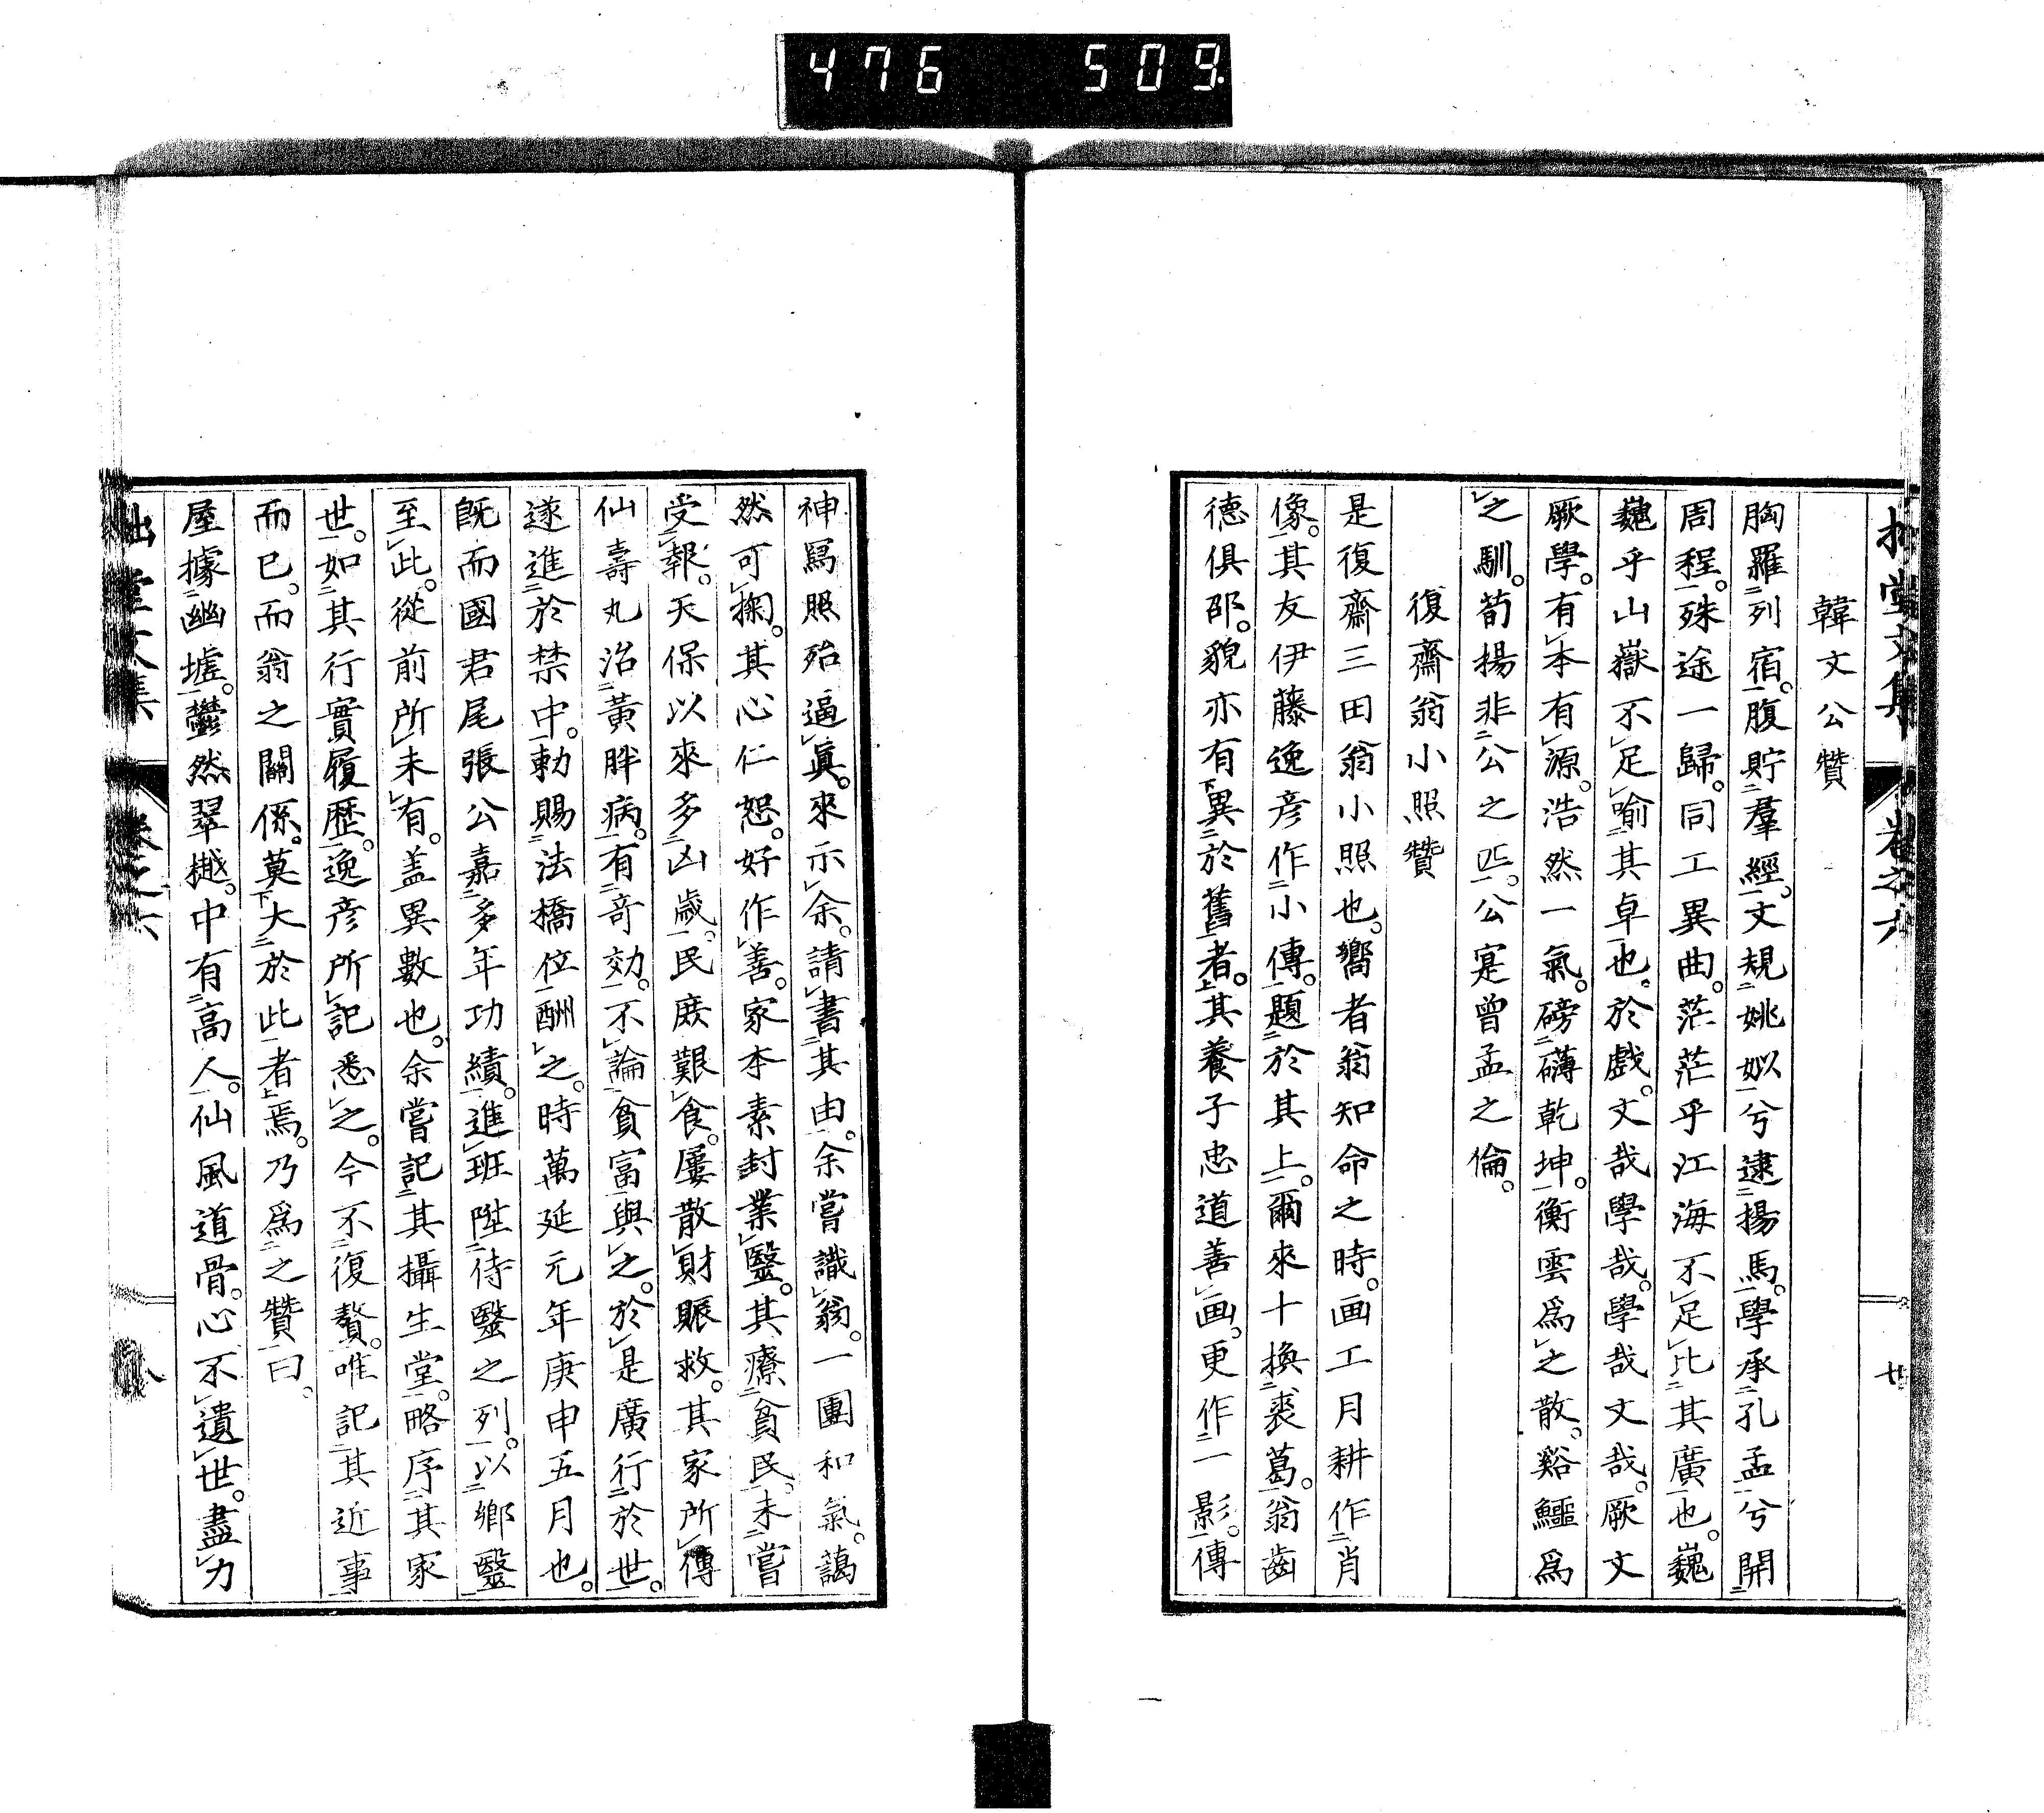 476 509
拙堂文集 卷之六 廿
韓文公贊
胸羅列宿。腹貯羣經。文規姚姒兮逮揚馬。學承孔孟兮開
周程。殊途一歸。同工異曲。茫茫乎江海不足比其廣也。巍
巍乎山嶽不足喻其卓也。於戲。文哉學哉。學哉文哉。厥文
厥學。有本有源。浩然一氣。磅礴乾坤。衡雲爲之散。谿鱷爲
之馴。荀揚非公之匹。公寔曾孟之倫。
復齋翁小照贊
是復齋三田翁小照也。嚮者翁知命之時。画工月耕作肖
像。其友伊藤逸彦作小傳。題於其上。爾來十換裘葛。翁齒
德俱邵。貌亦有異於舊者。其養子忠道善画。更作一影。傳
神寫照殆逼眞。來示余。請書其由。余嘗識翁。一團和氣。藹
然可掬。其心仁恕。好作善。家本素封業醫。其療貧民。未嘗
受報。天保以來多凶歲。民庶艱食。屢散財賑救。其家所傳
仙壽丸治黃胖病。有奇効。不論貧富與之。於是廣行於世。
遂進於禁中。勅賜法橋位酬之。時萬延元年庚申五月也。
既而國君尾張公嘉多年功績。進班陞侍醫之列。以鄉醫
至此。從前所未有。盖異數也。余嘗記其攝生堂。略序其家
世。如其行實履歷。逸彦所記悉之。今不復贅。唯記其近事
而已。而翁之關係。莫大於此者焉。乃爲之贊曰。
屋據幽墟。鬱然翠樾。中有高人。仙風道骨。心不遺世。盡力
拙堂文集 卷之六